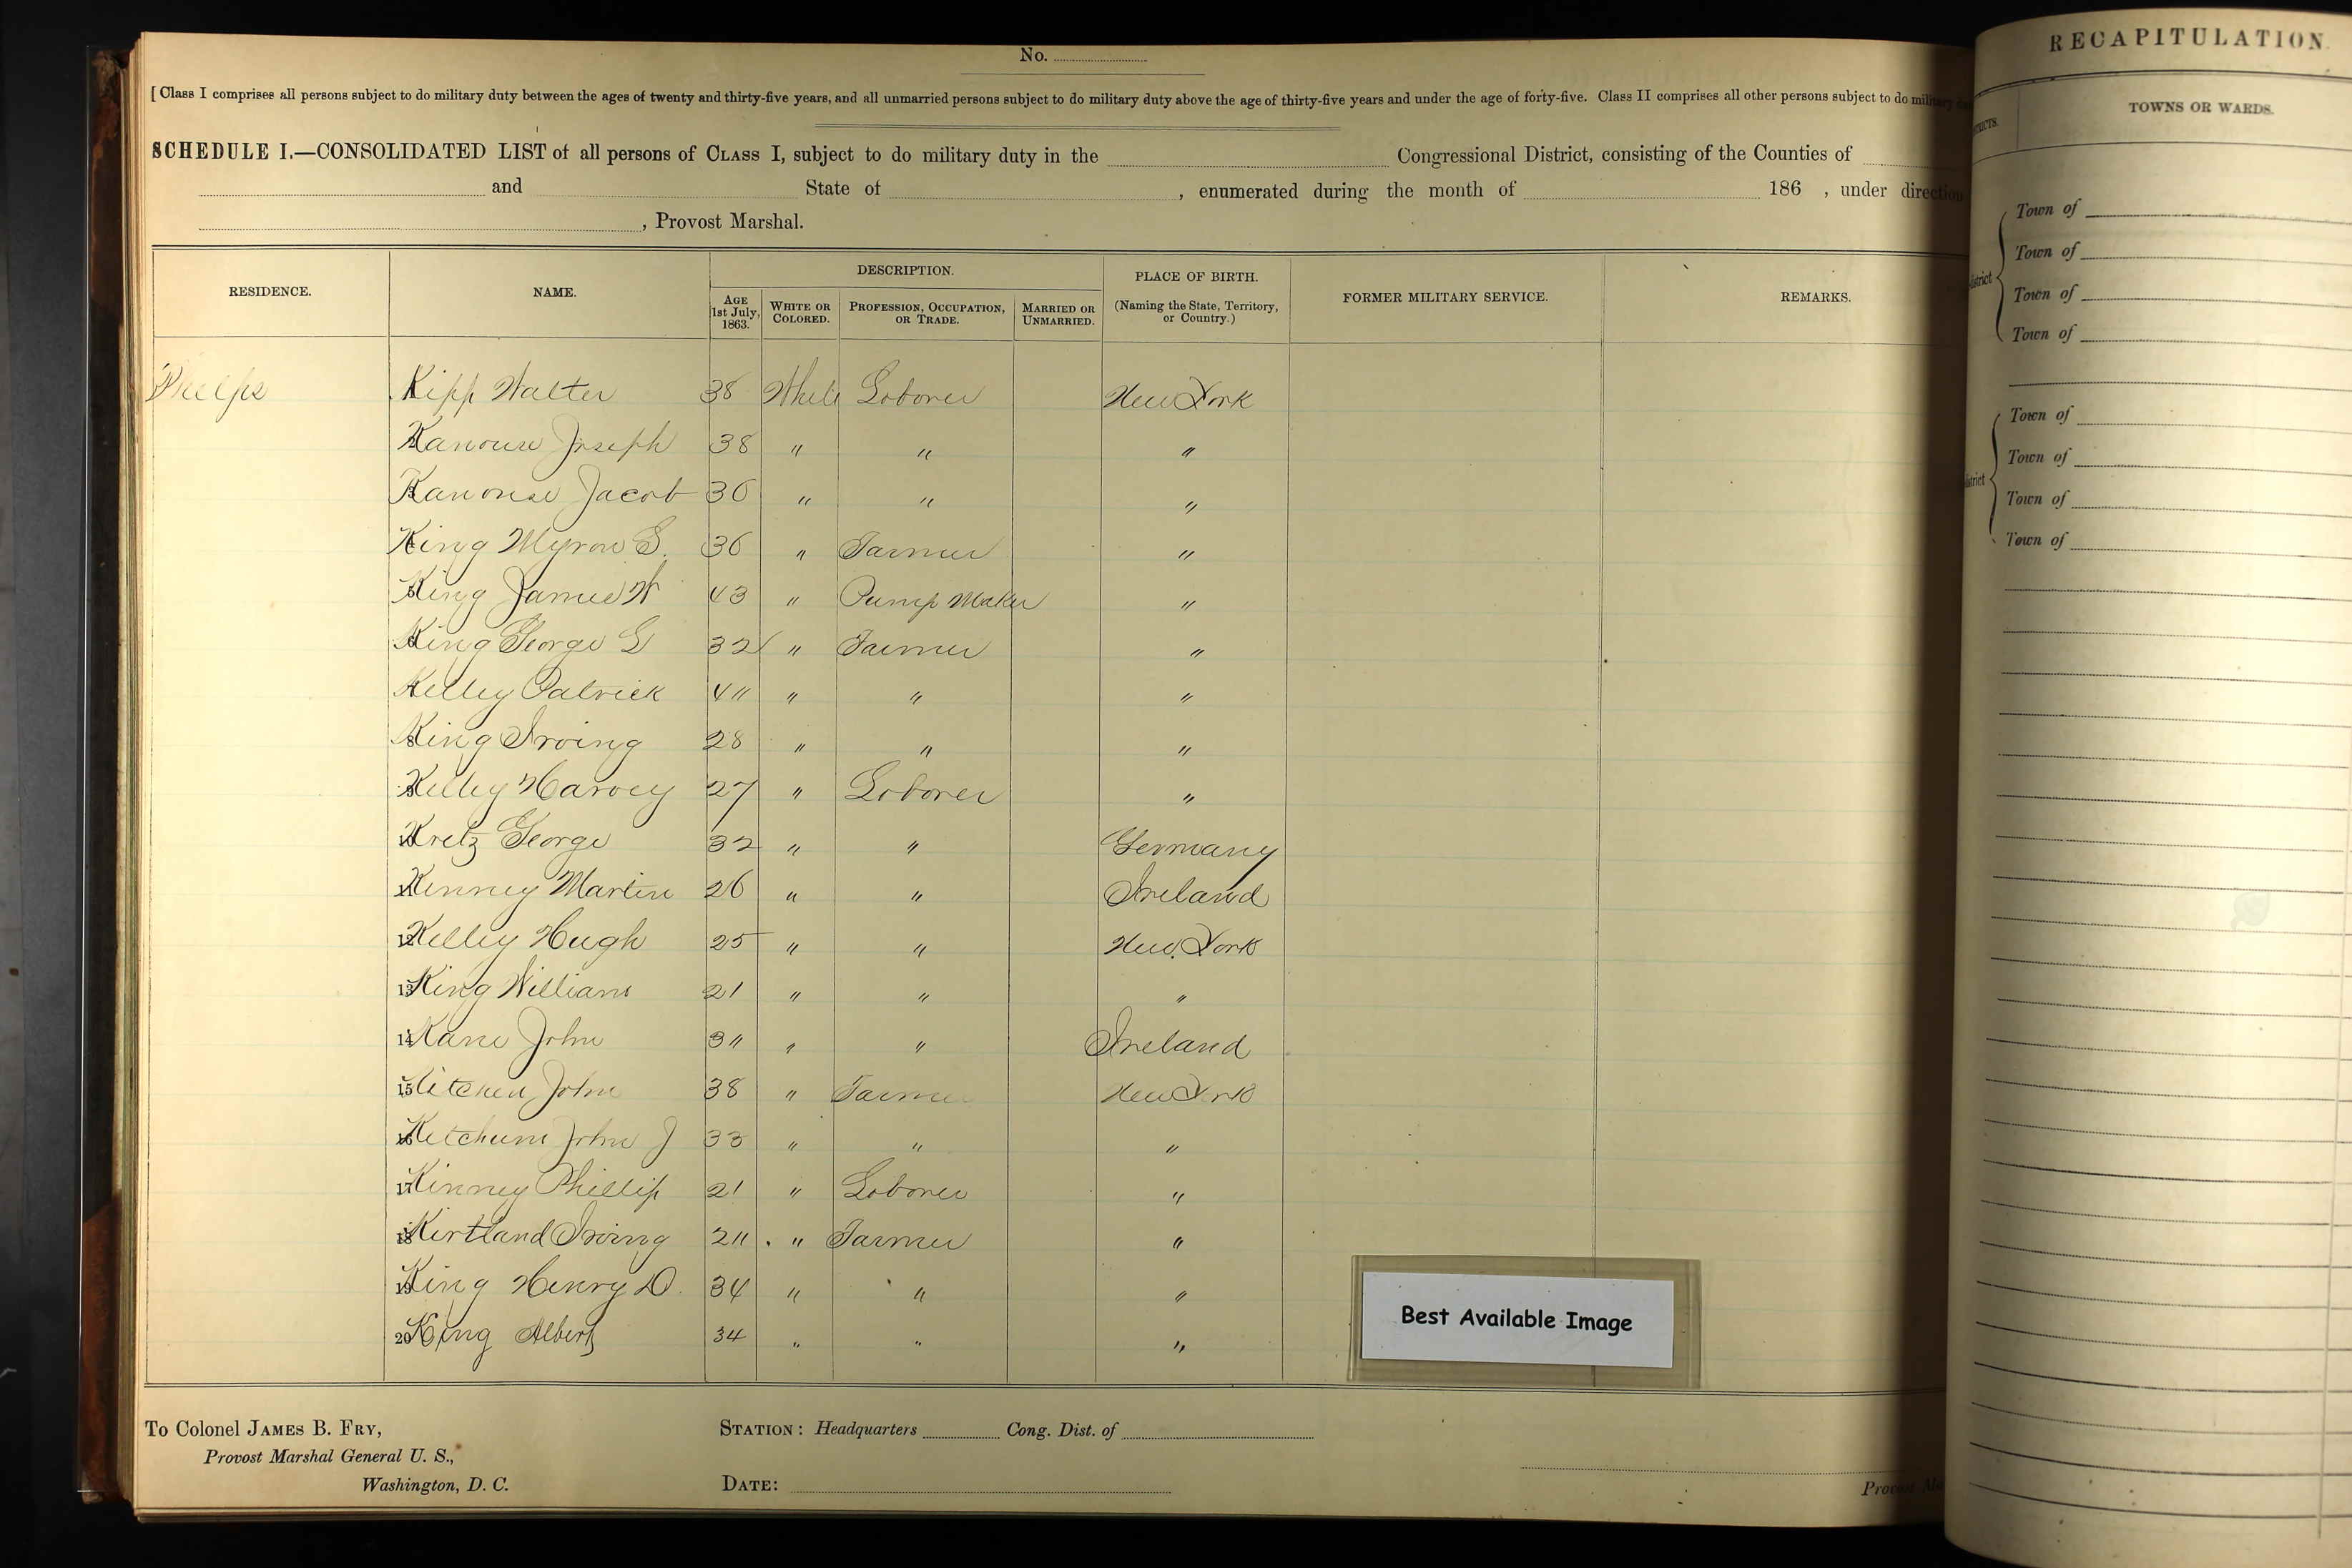 No.
[Class I comprises all persons subject to do military duty between the ages of twenty and thirty-five years, and all unmarried persons subject to do military duty above the age of thirty-five years and under the age of forty-five. Class II comprises all other persons subject to do military
SCHEDULE I.—CONSOLIDATED LIST of all persons of CLASS I, subject to do military duty in the Congressional District, consisting of the Counties of
and State of , enumerated during the month of 186 , under direction
, Provost Marshal.
RESIDENCE. NAME. DESCRIPTION. PLACE OF BIRTH. FORMER MILITARY SERVICE. REMARKS.
AGE 1st July, 1863. WHITE OR COLORED. PROFESSION, OCCUPATION, OR TRADE. MARRIED OR UNMARRIED. (Naming the State, Territory, or Country.)
Phelps Kipp Walter 38 White Laborer New York
Kanouse Joseph 38 " " "
Kanouse Jacob 36 " " "
King Myron S. 36 " Farmer "
King James W 43 " Pump Maker "
King George G 32 " Farmer "
Kelley Patrick 4" " " "
8 King Irving 28 " " "
9 Kelley Harvey 27 " Laborer "
10 Kretz George 32 " " Germany
11 Kenney Martin 26 " " Ireland
12 Kelley Hugh 25 " " New York
13 King William 21 " " "
14 Kane John 3" " " Ireland
15 Kitchen John 38 " Farmer New York
16 Ketchum John J 33 " " "
17 Kinney Phillip 21 " Laborer "
18 Kirtland Irving 2" " Farmer "
19 King Henry D. 34 " " "
20 King Albert 34 " " "
Best Available Image
To Colonel JAMES B. FRY,
Provost Marshal General U. S.,
Washington, D. C.
STATION: Headquarters Cong. Dist. of
DATE:
Provost
RECAPITULATION.
TOWNS OR WARDS.
Town of
Town of
Town of
Town of
Town of
Town of
Town of
Town of